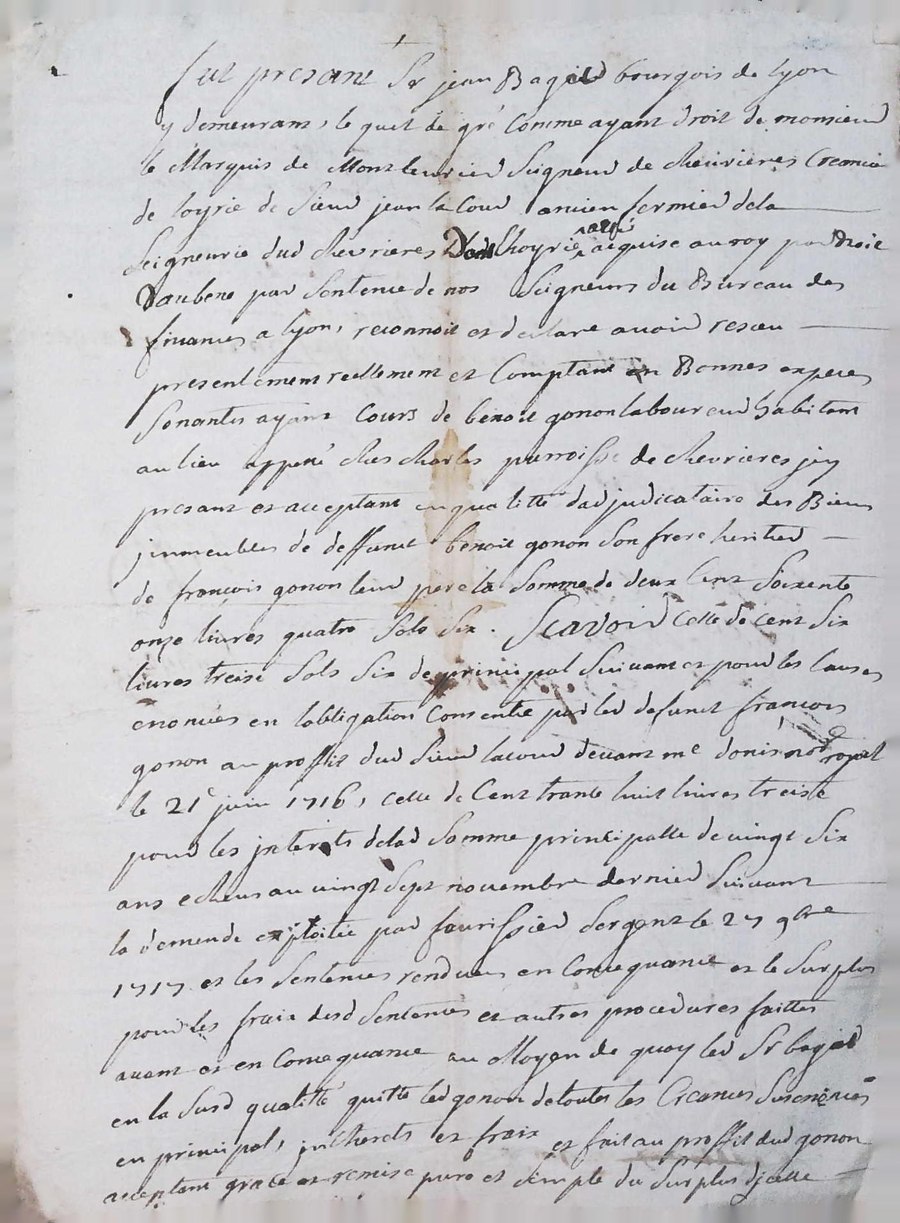 fut presant Sr jean Bagied bourgois de lyon
y demeurant, le quel de gré Comme ayant droit de monsieur
le Marquis de Montleurier Seigneur de Chevrières Creancié
de loyrie de Sieur jean la Cour ancien fermier dela
Seigneurie dud Chevrieres Lad hoyrie acquise au roy par droit
Daubene par Sentence de nos Seigneurs du Bureau des
finances a lyon, reconnoit et declare avoir resceu
presentement reellement et Comptant en Bonnes especes
Sonantes ayant Cours de benoit gonon laboureur habitant
au lieu appené Ches Charles parroisse de Chevrieres jcy
presant et acceptant en qualitté dadjudicataire des Biens
jmmeubles de deffunct benoit gonon Son frere heritier
de francois gonon leur pere la Somme de deux Cent Soixente
onze livres quatre Sols Six. Scavoir Celle de Cent Six
livres treise Sols Six de principal Suivant et pour les Causes
enoncées en lobligation Consentie par led defunct francois
gonon au proffit dud Sieur lacour devant me donis not royal
le 21e juin 1716, Celle de Cent trante huit livres treise
pour les jnterets delad Somme principalle de vingt Six
ans echeus au vingt Sept novembre dernier Suivant
la demende exploitée par faurissier Sergent le 27 9bre
1717 et les Sentences rendues en Consequance et le Surplus
pour les frais desd Sentences et autres procedures faittes
avant et en Consequance au Moyen de quoy led Sr bagied
en la Susd qualitté quitte led gonon de toutes les Creances Susenoncées
en principal, jntherets et frais et fait au proffit dud gonon
acceptant grace et remise pure et Simple du Surplus djcelle